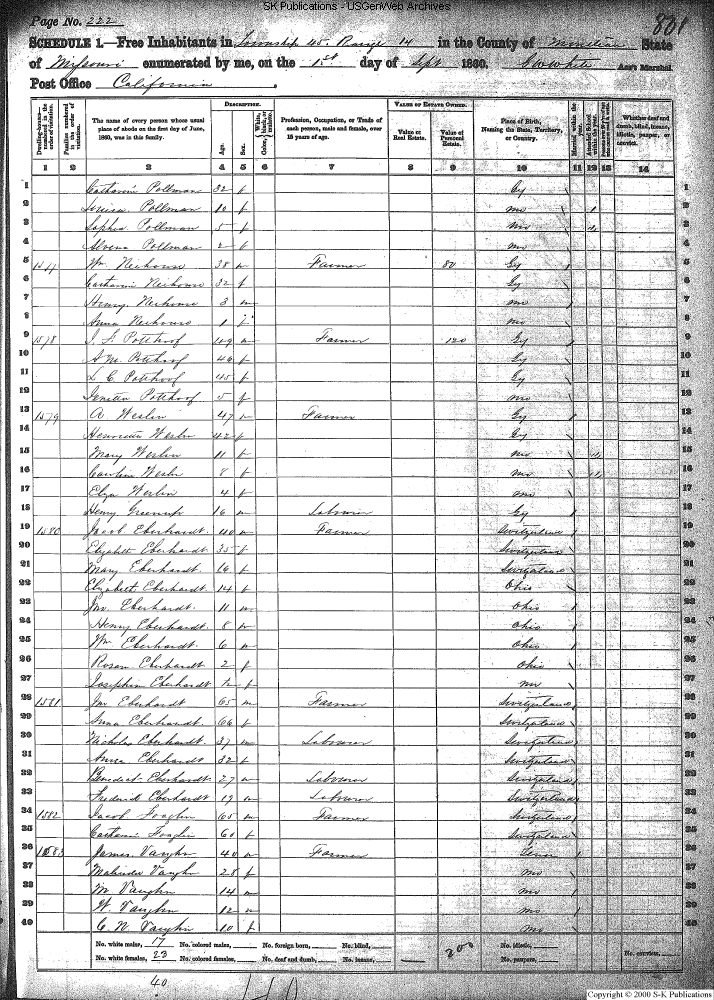 SK Publications - USGenWeb Archives
Page No. 222
801
SCHEDULE 1.—Free Inhabitants in Township 45. Range 14 in the County of Moniteau State
of Missouri enumerated by me, on the 1st day of Sept 1860. Ass't Marshal
Post Office California.
Dwelling-houses—numbered in the order of visitation.
Families numbered in the order of visitation.
The name of every person whose usual place of abode on the first day of June, 1860, was in this family.
DESCRIPTION.
Age.
Sex.
Color, White, black, or mulatto.
Profession, Occupation, or Trade of each person, male and female, over 15 years of age.
VALUE OF ESTATE OWNED.
Value of Real Estate.
Value of Personal Estate.
Place of Birth, Naming the State, Territory, or Country.
Married within the year.
Whether deaf and dumb, blind, insane, idiotic, pauper, or convict.
1 2 3 4 5 6 7 8 9 10 11 12 13 14
1 Catharin Pollman 32 f Gy 1
2 Louisa Pollman 10 f Mo 1 2
3 Sophia Pollman 5 f Mo 3
4 Alvena Pollman 2 f Mo 4
5 Wm Nerhouse 38 m Farmer 80 Gy 5
6 Catharin Nerhouse 32 f Gy 6
7 Henry Nerhouse 3 m Mo 7
8 Anna Nerhouse 1 f Mo 8
9 1578 J. F. Potthoof 49 m Farmer 120 Gy 9
10 A M. Potthoof 46 f Gy 10
11 L C Potthoof 45 f Gy 11
12 Potthoof 5 f Mo 12
13 1579 A Werlin 47 m Farmer Gy 13
14 Henrietta Werlin 42 f Gy 14
15 Mary Werlin 11 f Mo 15
16 Caroline Werlin 8 f Mo 16
17 Eliza Werlin 4 f Mo 17
18 Henry 16 m Laborer Gy 18
19 1580 Jacob Eberhardt. 40 m Farmer Switzerland 19
20 Elizabeth Eberhardt. 35 f Switzerland 20
21 Mary Eberhardt. 16 f Switzerland 21
22 Elizabeth Eberhardt. 14 f Ohio 22
23 Jno. Eberhardt. 11 m Ohio 23
24 Henry Eberhardt. 8 m Ohio 24
25 Wm Eberhardt. 6 m Ohio 25
26 Rosan Eberhardt 2 f Ohio 26
27 Josephine Eberhardt f Mo 27
28 1581 Jno Eberhardt 65 m Farmer Switzerland 28
29 Anna Eberhardt. 66 f Switzerland 29
30 Nicholas Eberhardt. 37 m Laborer Switzerland 30
31 Anna Eberhardt 32 f Switzerland 31
32 Benedict Eberhardt 27 m Laborer Switzerland 32
33 Frederick Eberhardt 19 m Laborer Switzerland 33
34 1582 Jacob 65 m Farmer Switzerland 34
35 Catharin 60 f Switzerland 35
36 1583 James Vaughn 40 m Farmer Tenn 36
37 Malinda Vaughn 28 f Mo 37
38 M Vaughn 14 m Mo 38
39 W. Vaughn 12 m Mo 39
40 C. N. Vaughn 10 f Mo 40
No. white males, 17 No. colored males, No. foreign born, No. blind, 200 No. idiotic,
No. white females, 23 No. colored females, No. deaf and dumb, No. insane, No. paupers, No. convicts,
40
Copyright © 2000 S-K Publications